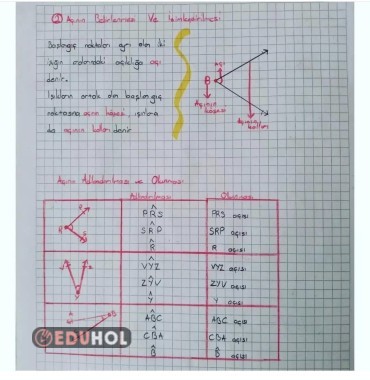 ① Açının Belirlenmesi Ve İsimlendirilmesi
Başlangıç noktaları aynı olan iki
ışın arasındaki açıklığa açı
denir.
Işınların ortak olan başlangıç
noktasına açının köşesi, ışınlara
da açının kolları denir
açı
B
Açının
köşesi
Açının
kolları
Açının Adlandırılması ve Okunması
Adlandırılması
Okunması
P
R
S
PRS
SRP
R
PRS açısı
SRP açısı
R açısı
V
Z
Y
VYZ
ZYV
Y
VYZ açısı
ZYV açısı
Y açısı
ABC
CBA
B
ABC açısı
CBA açısı
B açısı
EDUHOL